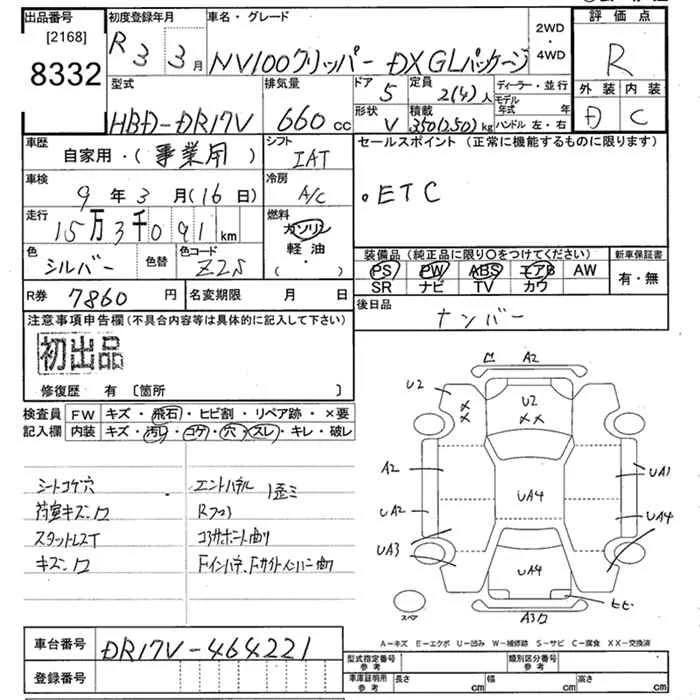 出品番号
[2168]
8332
初度登録年月
R3 3月
車名・グレード
NV100クリッパー DX GLパッケージ
2WD
・
4WD
評価点
R
外装 内装
D C
型式
HBD-DR17V
排気量
660 cc
ドア
5
定員
2(4)人
形状
V
積載
350(250)kg
ディーラー・並行
モデル年式 年
ハンドル 左・右
車歴
自家用・(事業用)
シフト
IAT
セールスポイント (正常に機能するものに限ります)
・ETC
車検
9年3月(16日)
冷房
A/C
走行
15万3千091km
燃料
ガソリン
軽油
( ・ )
色
シルバー
色替
色コード
Z2S
装備品(純正品に限り○をつけてください)
PS PW ABS エアB AW
SR ナビ TV カワ
新車保証書
有・無
R券 7860円
名変期限 月 日
後日品
ナンバー
注意事項申告欄(不具合内容等は具体的に記入して下さい)
初出品
修復歴 有 〔箇所 〕
検査員
記入欄
FW キズ・飛石・ヒビ割・リペア跡・×要
内装 キズ・汚れ・コゲ・穴・スレ・キレ・破レ
シートコゲ穴
荷室キズ、口
スタットレスT
キズ、口
エントパネル 歪ミ
Rフロ
コアサポート曲り
Fインパネ、Fサイドメンバー曲り
A2
U2
××
U2
××
A2
UA2
UA3
UA4
UA4
UA1
UA4
ヒビ
A3口
スペア
A－キズ E－エクボ U－凹み W－補修跡 S－サビ C－腐食 XX－交換済
車台番号
DR17V-464221
登録番号
型式指定番号
参考
類別区分番号
参考
車庫証明用
参考
長さ cm
幅 cm
高さ cm